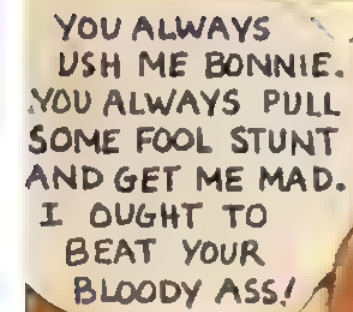 YOU ALWAYS
USH ME BONNIE.
YOU ALWAYS PULL
SOME FOOL STUNT
AND GET ME MAD.
I OUGHT TO
BEAT YOUR
BLOODY ASS!